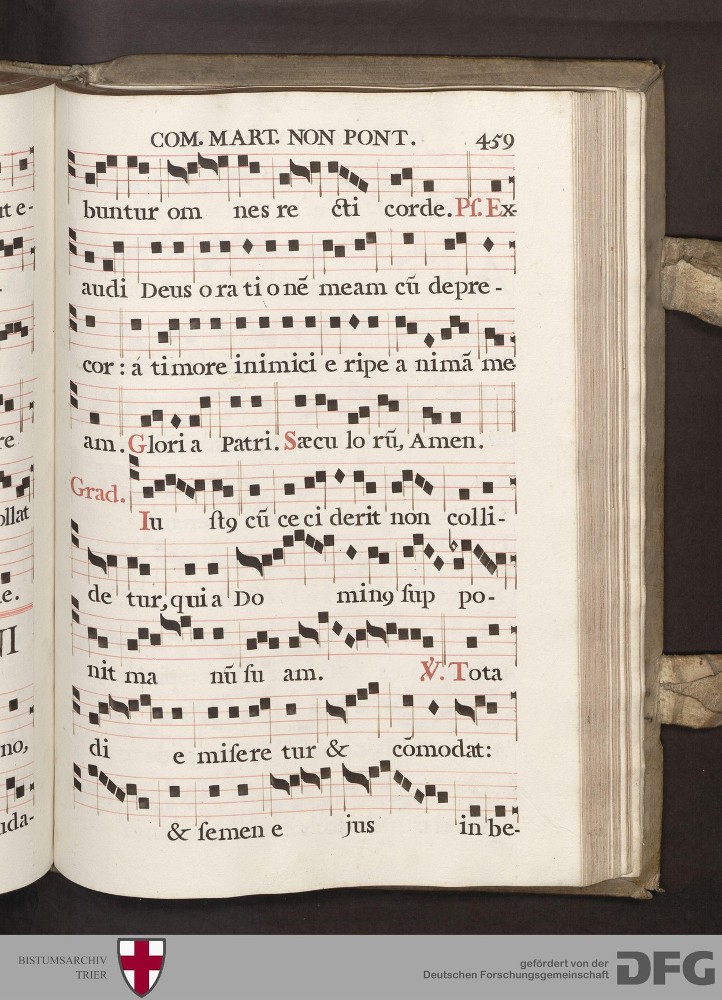 COM. MART. NON PONT. 459
buntur om nes re cti corde. Pſ. Ex-
audi Deus o ra ti o nē meam cū depre-
cor : á timore inimici e ripe a nimā me
am. Glori a Patri. Sæcu lo rū, Amen.
Grad.
Iu ſtꝯ cū ce ci derit non colli-
de tur, qui a Do minꝯ ſup po-
nit ma nū ſu am. ℣. Tota
di e miſere tur & cōmodat:
& ſemen e jus in be-
ut e-
re
ollat
e.
NI
no,
uda-
BISTUMSARCHIV
TRIER
gefördert von der
Deutschen Forschungsgemeinschaft
DFG